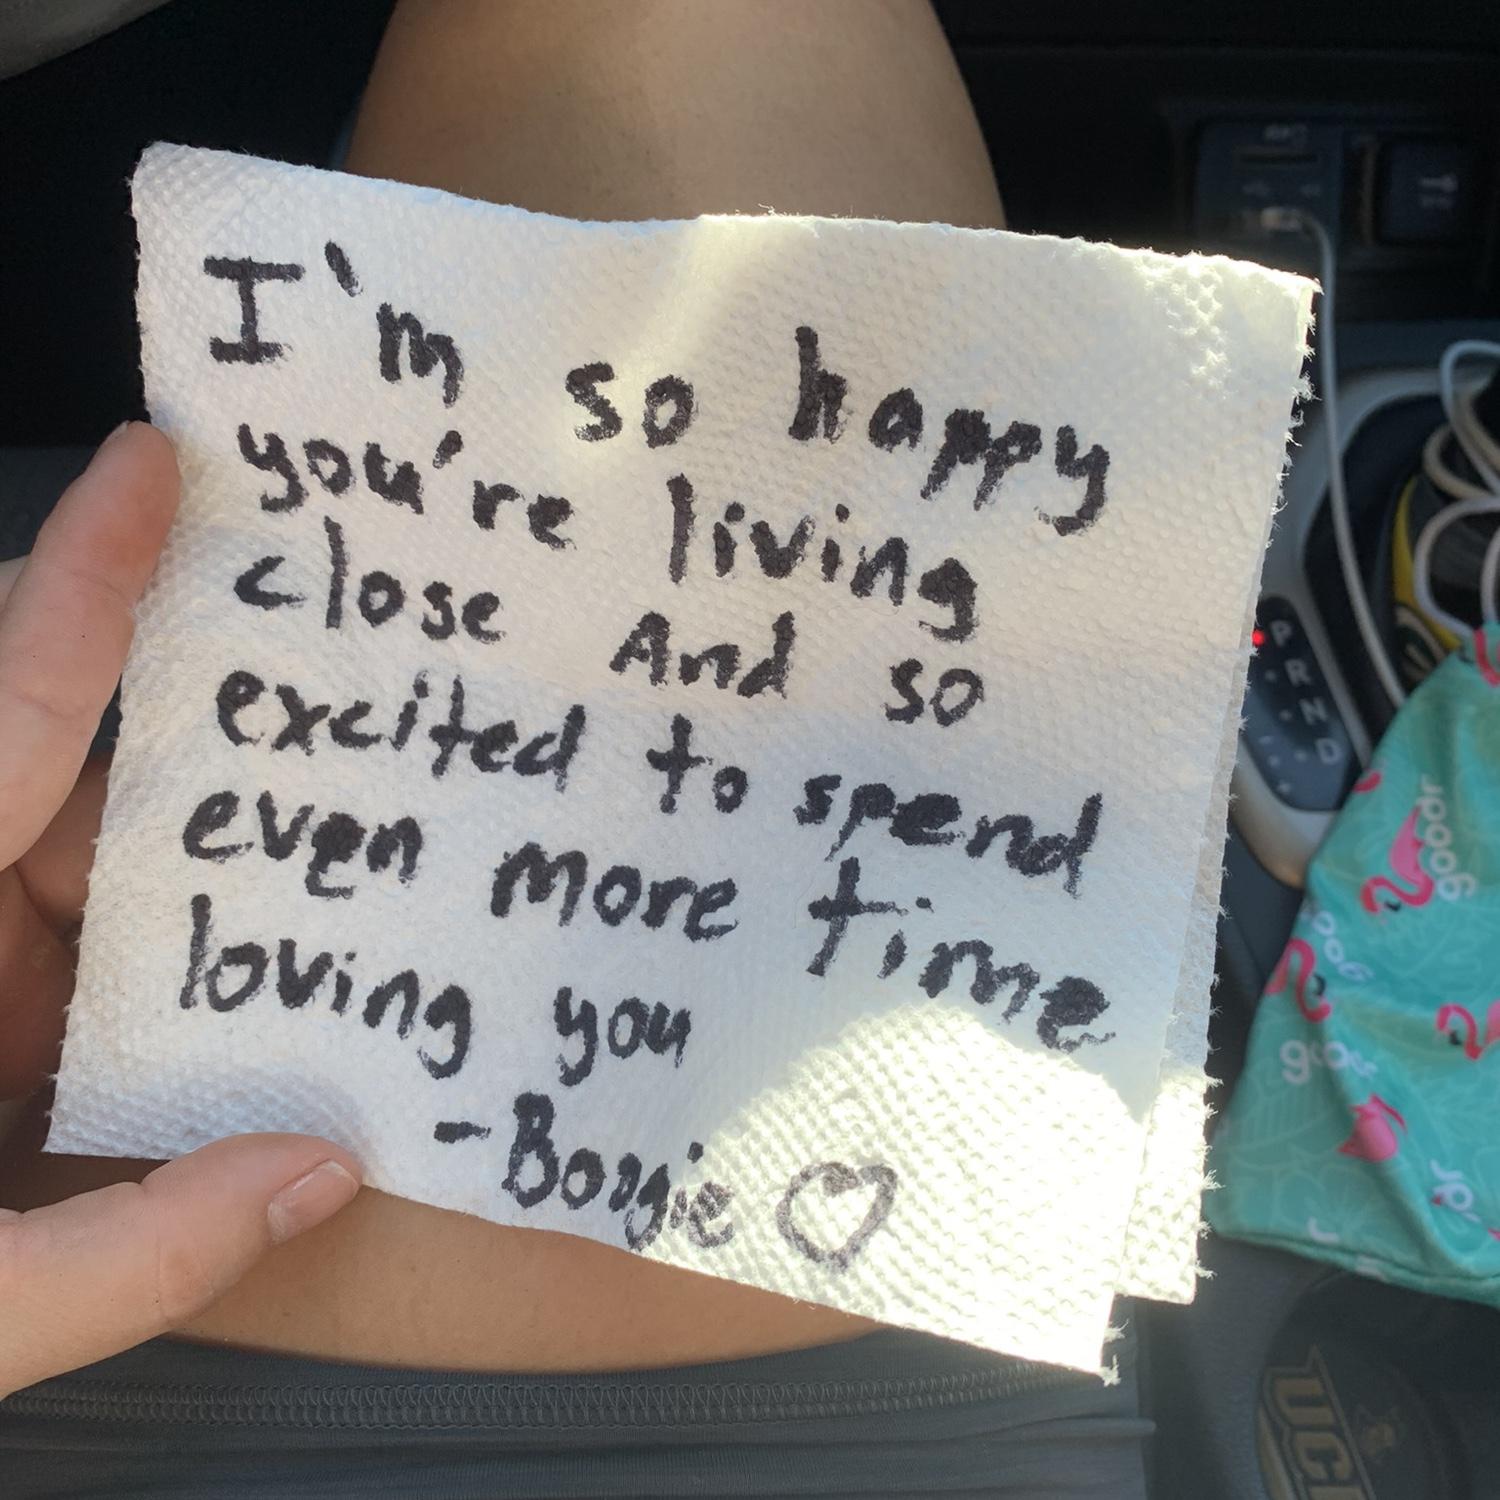 I'm so happy
you're living
close And so
excited to spend
even more time
loving you
-Boogie ♡
P
R
N
D
goodr
goodr
UCF